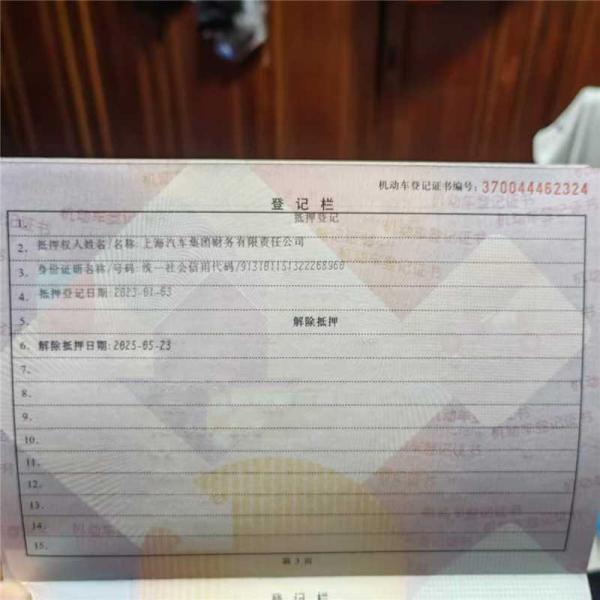 机动车登记证书编号: 370044462324
登记栏
1. 抵押登记
2. 抵押权人姓名/名称: 上海汽车集团财务有限责任公司
3. 身份证明名称/号码: 统一社会信用代码/913101151322268960
4. 抵押登记日期: 2023-01-03
5. 解除抵押
6. 解除抵押日期: 2025-05-23
7.
8.
9.
10.
11.
12.
13.
14.
15.
第 3 页
登记栏